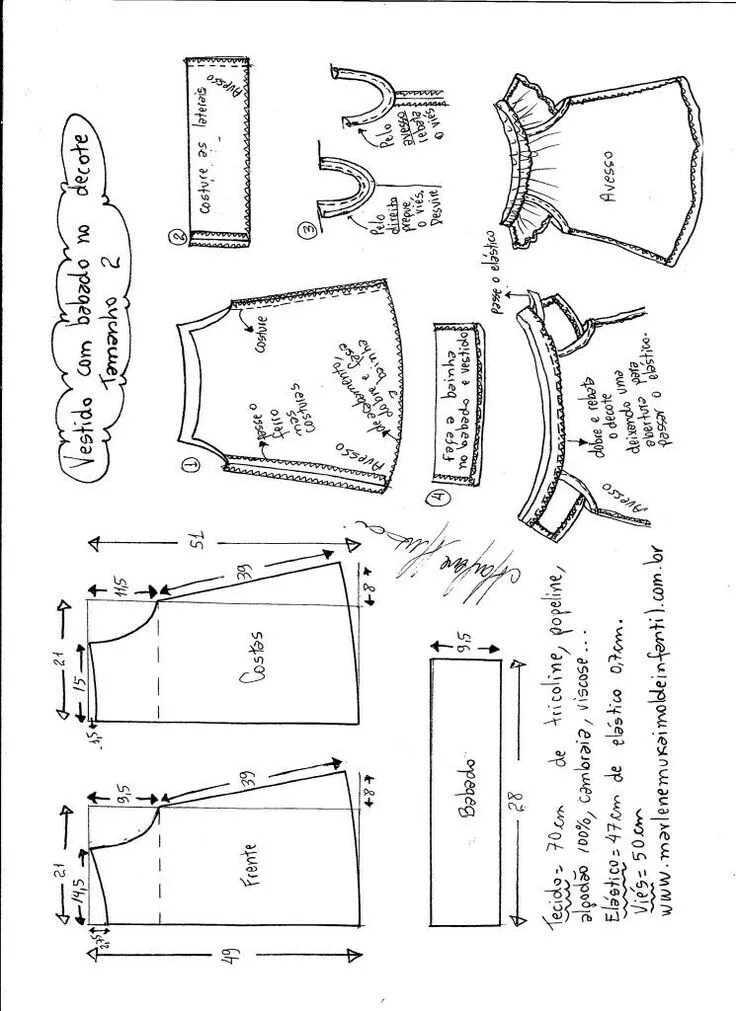 Vestido com babado no decote
Tamanho 2
21
14,5
2,75
9,5
39
8
49
Frente
21
15
1,5
11,5
39
8
51
Costas
1
Avesso
passe o
ferro
nas
costuras
costure
dobre e faça
a bainha
2
costure as laterais
Avesso
3
Pelo
direito
pregue
o viés,
Desvire
Pelo
avesso
rebata
o viés
4
faça a bainha
no babado e vestido
Babado
28
9,5
Avesso
dobre e rebata
o decote
deixando uma
abertura para
passar o elástico.
passe o elástico
Avesso
Tecido= 70cm de tricoline, popeline,
algodão 100%, cambraia, viscose...
Elástico= 47cm de elástico 0,7cm.
Viés= 50cm
www.marlenemukaimoldeinfantil.com.br